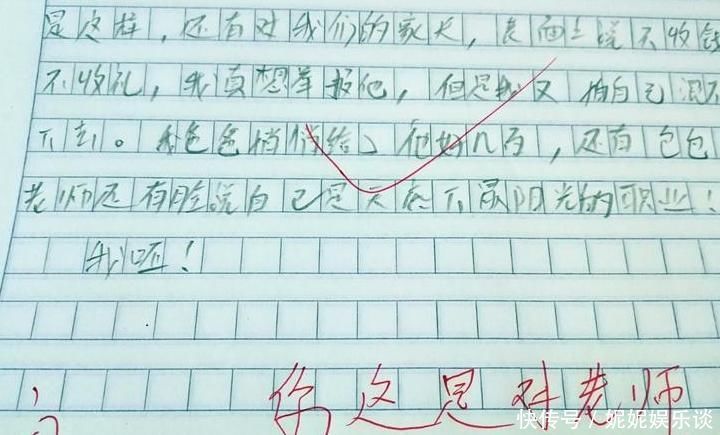 是这样，还有对我们的家长，表面上说不收钱
不收礼，我真想举报他，但是我又怕自己混不
下去。我爸爸悄悄给了他好几百，还有包包
老师还有脸说自己是天底下最阳光的职业！
我呸！
你这是对老师
快传号／妮妮娱乐谈